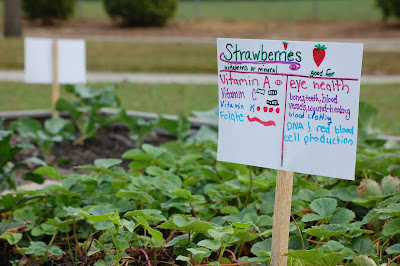 Strawberries
vitamins or mineral
good for
Vitamin A
eye health
Vitamin C
bones, teeth, blood
vessels, wound-healing
Vitamin K
blood clotting
Folate
DNA & red blood
cell production